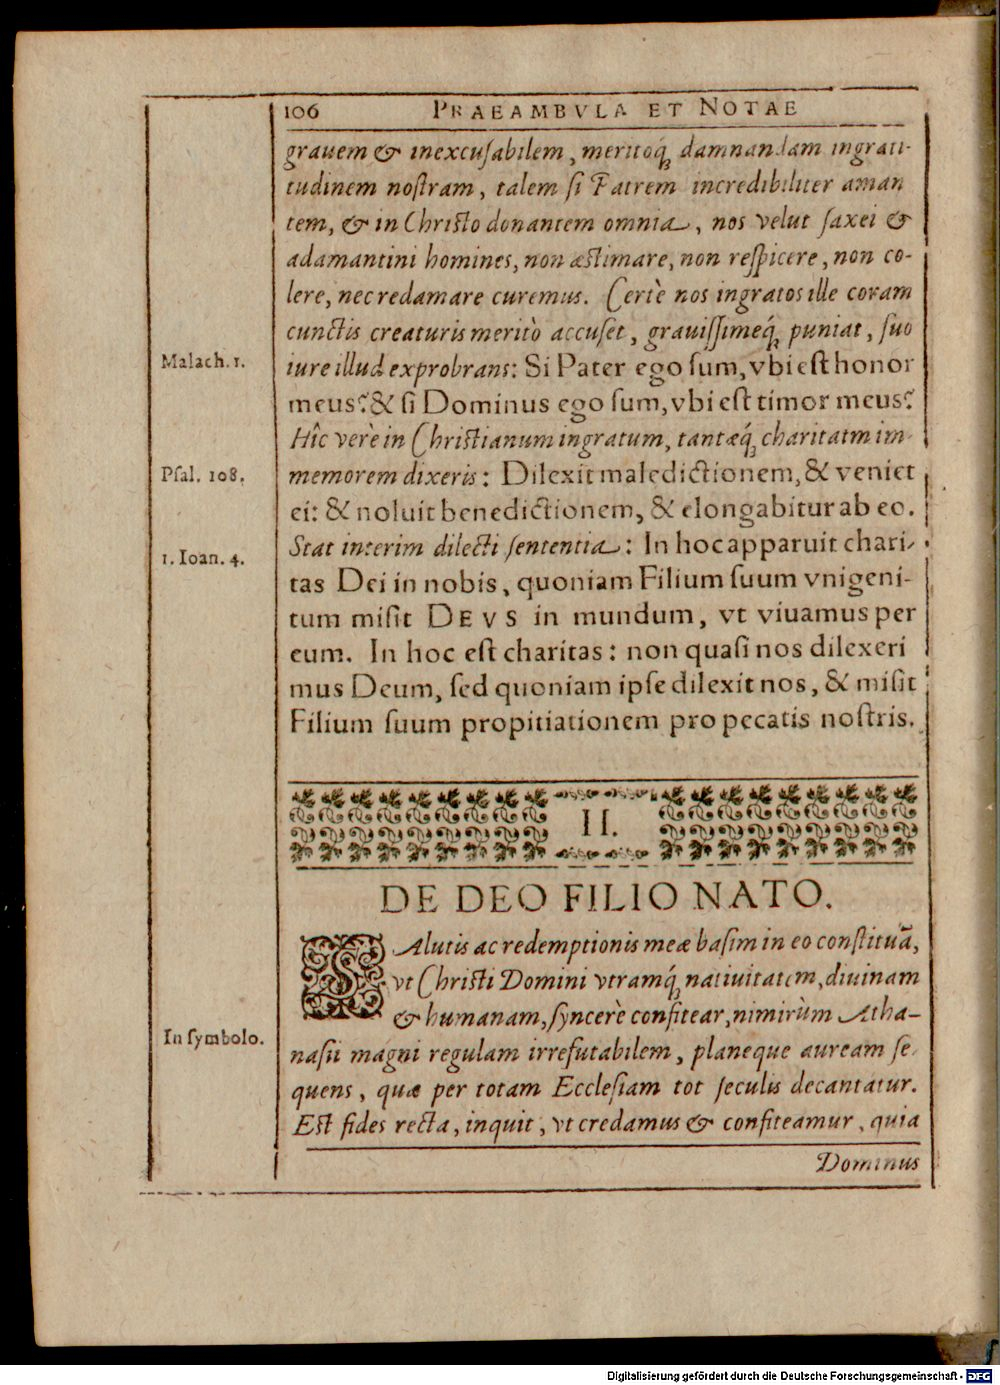 106 PRAEAMBVLA ET NOTAE
grauem & inexcuſabilem, meritoq́ꝫ damnandam ingrati-
tudinem noſtram, talem ſi Patrem incredibiliter aman
tem, & in Chriſto donantem omnia, nos velut ſaxei &
adamantini homines, non æſtimare, non reſpicere, non co-
lere, nec redamare curemus. Certè nos ingratos ille coram
cunctis creaturis meritò accuſet, grauiſſimeq́ꝫ puniat, ſuo
Malach. 1.
iure illud exprobrans: Si Pater ego ſum, vbi eſt honor
meus? & ſi Dominus ego ſum, vbi eſt timor meus?
Hîc verè in Chriſtianum ingratum, tantæq́ꝫ charitatm im-
Pſal. 108.
memorem dixeris: Dilexit maledictionem, & veniet
ei: & noluit benedictionem, & elongabitur ab eo.
Stat interim dilecti ſententia: In hoc apparuit chari-
1. Ioan. 4.
tas Dei in nobis, quoniam Filium ſuum vnigeni-
tum miſit DEVS in mundum, vt viuamus per
eum. In hoc eſt charitas: non quaſi nos dilexeri
mus Deum, ſed quoniam ipſe dilexit nos, & miſit
Filium ſuum propitiationem pro pecatis noſtris.
II.
DE DEO FILIO NATO.
SAlutis ac redemptionis meæ baſim in eo conſtituã,
vt Chriſti Domini vtramq́ꝫ natiuitatem, diuinam
& humanam, ſyncerè confitear, nimirùm Atha-
In ſymbolo.
naſii magni regulam irrefutabilem, planeque auream ſe-
quens, quæ per totam Eccleſiam tot ſeculis decantatur.
Eſt fides recta, inquit, vt credamus & confiteamur, quia
Dominus
Digitalisierung gefördert durch die Deutsche Forschungsgemeinschaft - DFG